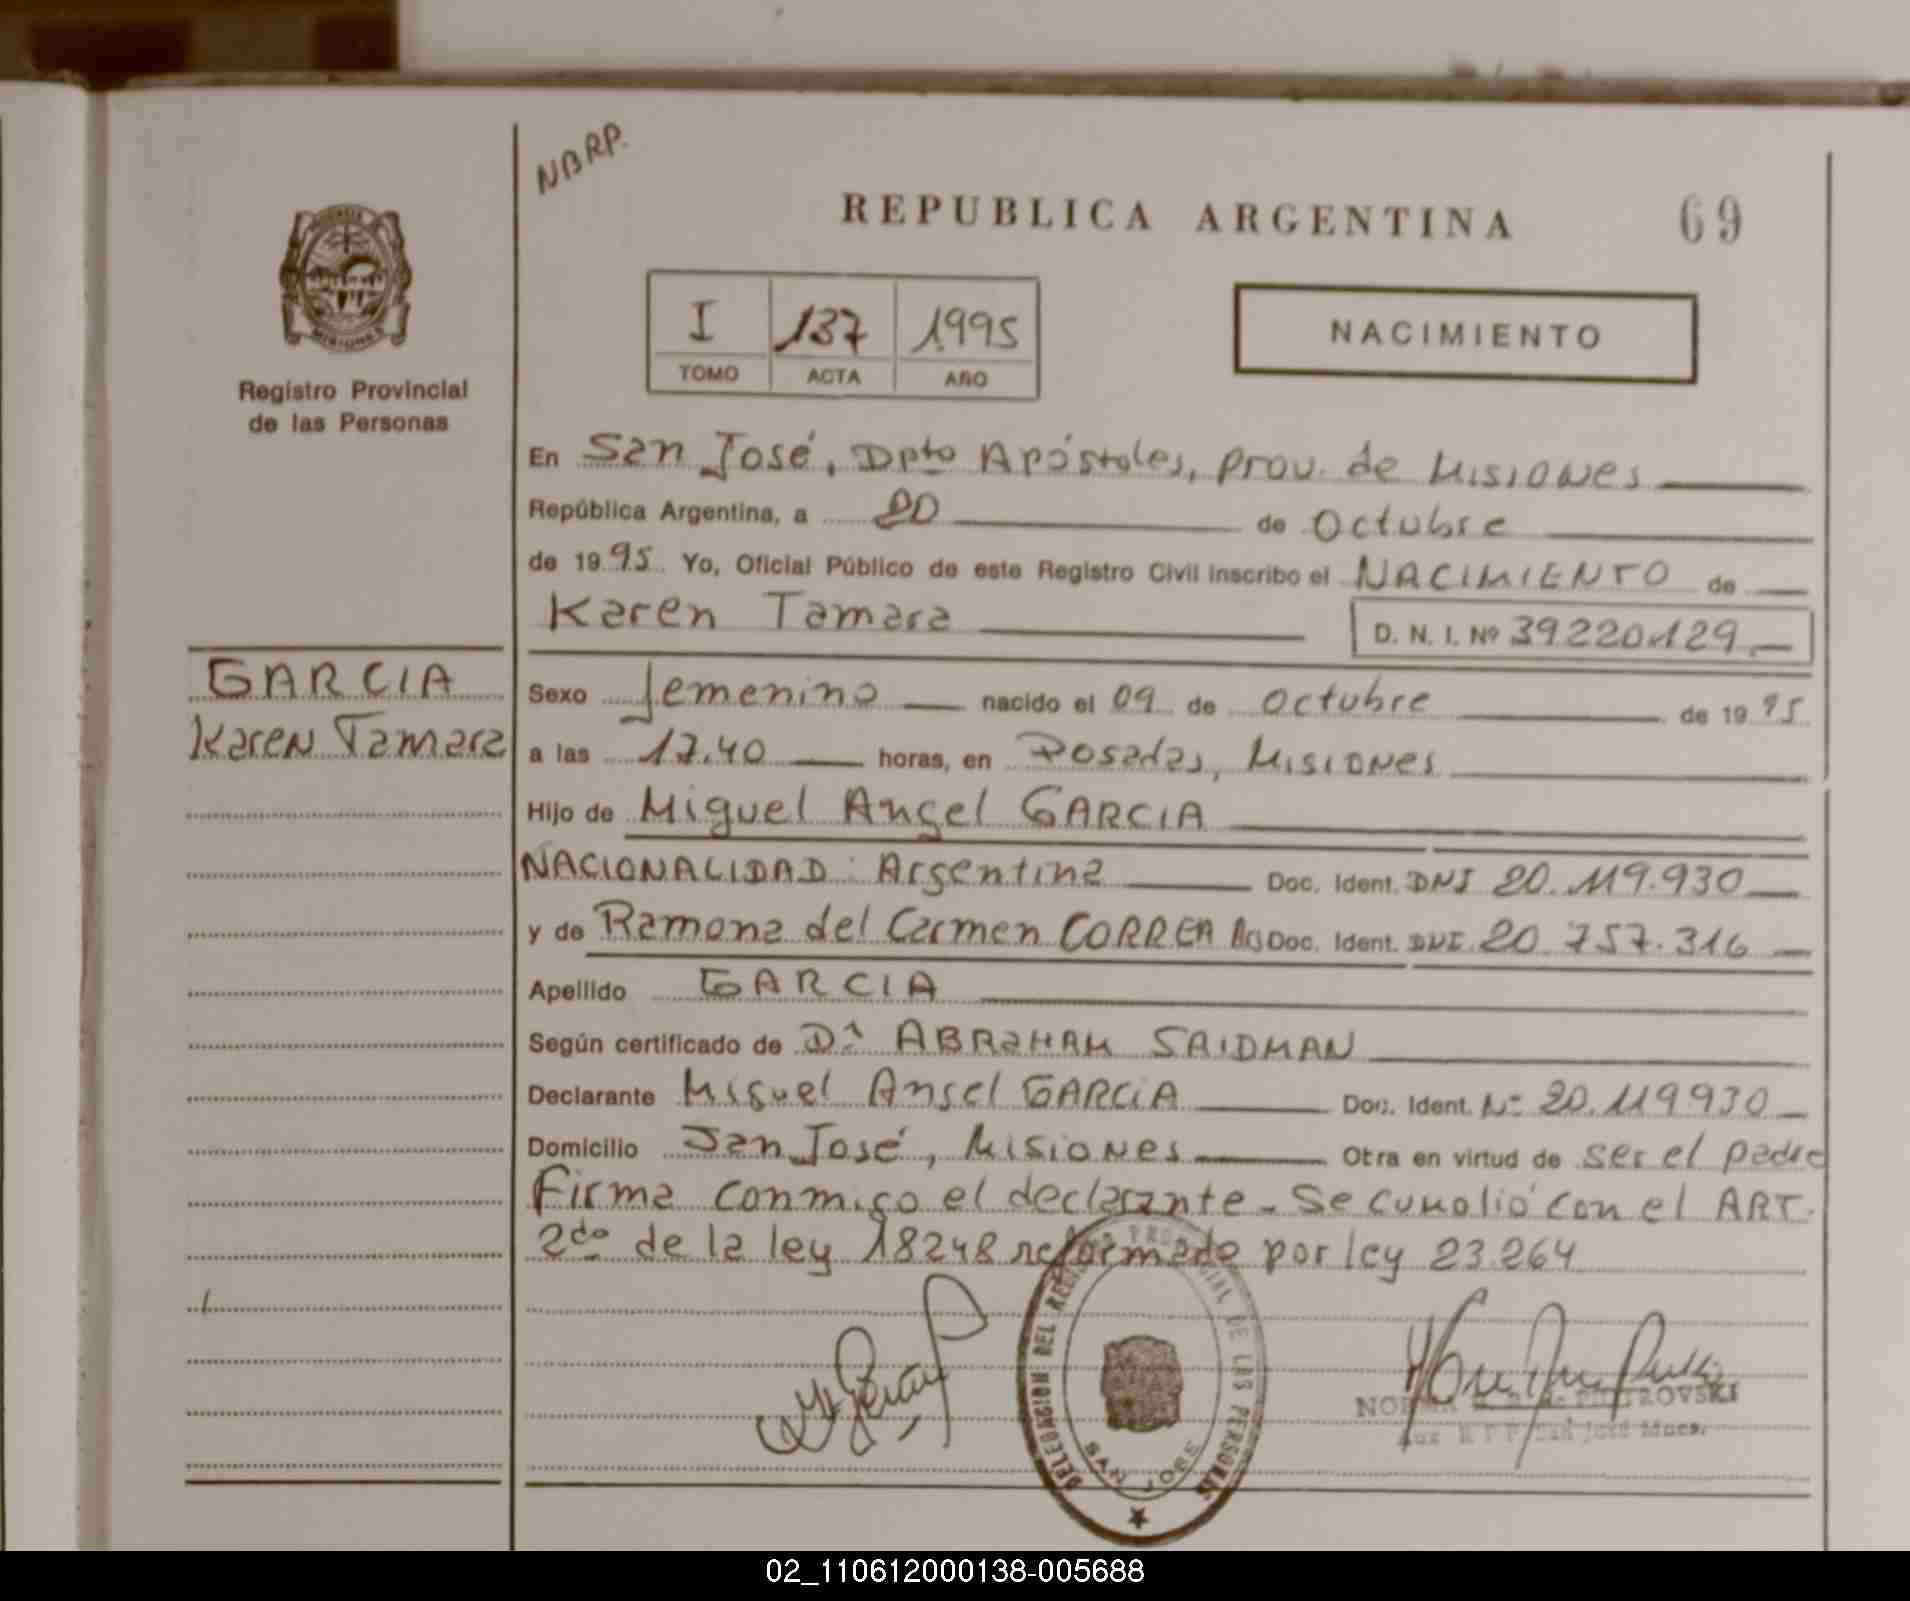 NBRP.
REPUBLICA ARGENTINA
69
I 137 1995
TOMO ACTA AÑO
NACIMIENTO
Registro Provincial
de las Personas
En San José, Dpto Apóstoles, Prov. de Misiones
República Argentina, a 20 de Octubre
de 1995. Yo, Oficial Público de este Registro Civil inscribo el NACIMIENTO de
Karen Tamara D. N. I. Nº 39220129
GARCIA
Karen Tamara
Sexo femenino nacido el 09 de octubre de 1995
a las 17.40 horas, en Posadas, Misiones
Hijo de Miguel Angel GARCIA
NACIONALIDAD: Argentina Doc. Ident. DNI 20.119.930
y de Ramona del Carmen CORREA Arg Doc. Ident. DNI 20.757.316
Apellido GARCIA
Según certificado de Dr ABRAHAM SAIDMAN
Declarante Miguel Angel GARCIA Doc. Ident. Nº 20.119930
Domicilio San José, Misiones Otra en virtud de ser el padre
Firma conmigo el declarante - Se cumplió con el ART.
2do de la ley 18248 reformado por ley 23.264
DELEGACION DEL REGISTRO PROVINCIAL DE LAS PERSONAS
SAN JOSE
PIOTROVSKI
San José Mnes.
02_110612000138-005688